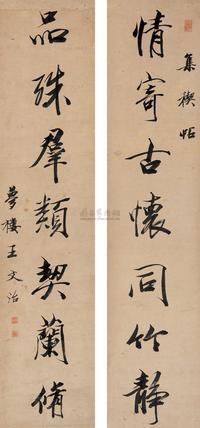 集稧帖
情寄古懷同竹静
品殊羣類契蘭脩
夢樓王文治